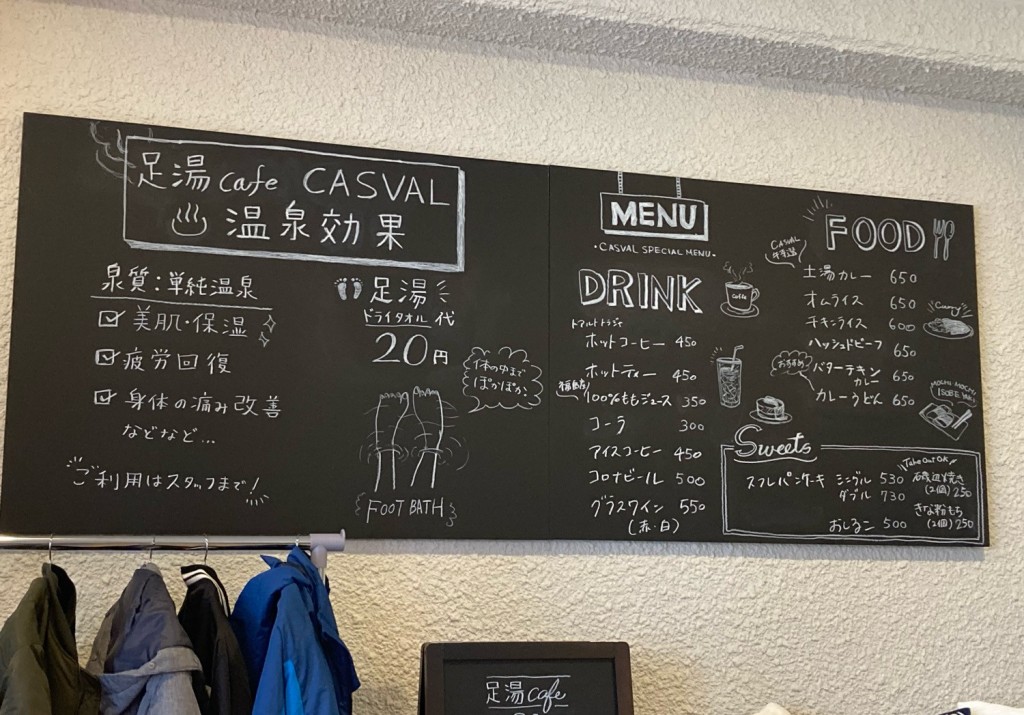 足湯cafe CASVAL
♨温泉効果
泉質：単純温泉
☑美肌・保湿
☑疲労回復
☑身体の痛み改善
などなど…
ご利用はスタッフまで!
足湯
ドライタオル代
20円
体の中まで
ぽかぽか♪
FOOT BATH
MENU
・CASVAL SPECIAL MENU・
DRINK
Coffe
トアルコトラジャ
ホットコーヒー 450
ホットティー 450
福島産!
100%ももジュース 350
コーラ 300
アイスコーヒー 450
コロナビール 500
グラスワイン 550
(赤・白)
FOOD
CASVAL
土湯カレー 650
オムライス 650
チキンライス 600
ハッシュドビーフ 650
おすすめ
バターチキン
カレー 650
カレーうどん 650
Curry
MOCHI MOCHI
ISOBE YAKI
Sweets
スフレパンケーキ シングル 530
ダブル 730
おしるこ 500
Take Out OK
磯辺焼き
(2個) 250
きな粉もち
(2個) 250
足湯cafe